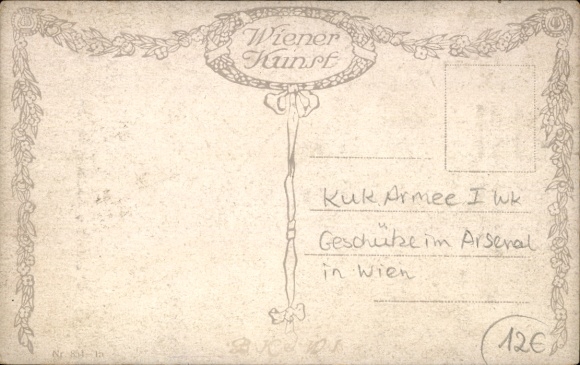 Wiener
Kunst
KuK Armee I Wk
Geschütze im Arsenal
in Wien
12€